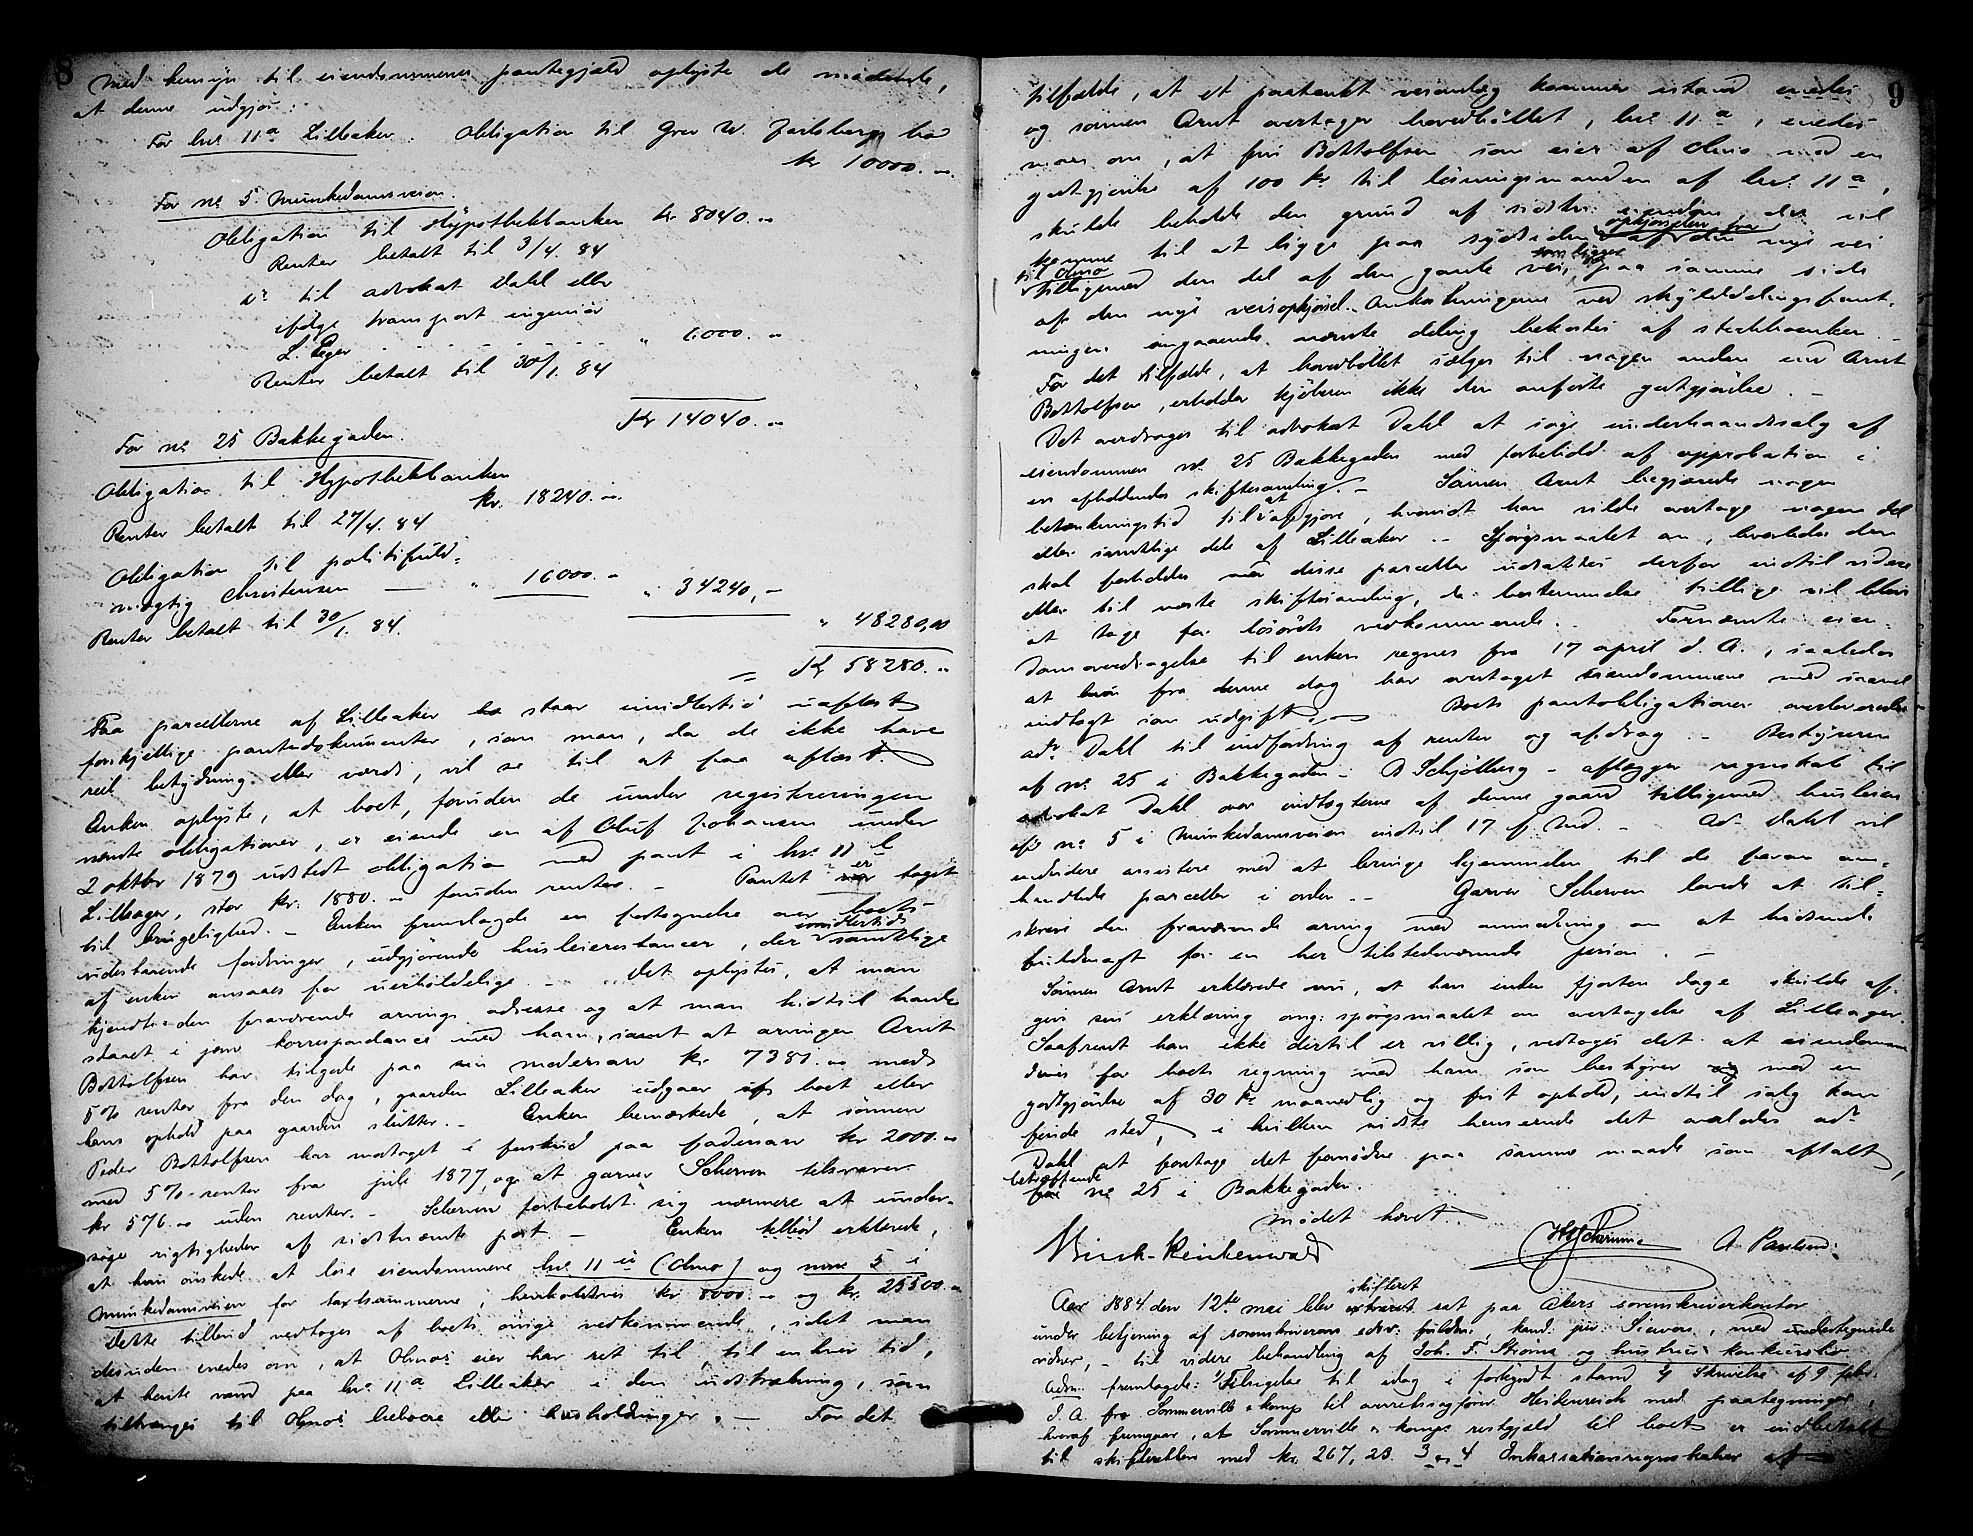 8
Med hensyn til eiendommenes pantegjæld oplyste de mødende,
at denne udgjør:
For br. 11a Lilleaker. Obligation til Grev W. Jarlsbergs bo
kr 10000. "
For no 5 Munkedamsveien.
Obligation til Hypothekbanken kr 8040. "
Renter betalt til 3/4. 84
do til advokat Dahl eller
ifølge transport ingeniør
L. Eger . . . . . " 6000. "
Renter betalt til 30/1. 84
Kr 14040. "
For no 25 Bakkegaden.
Obligation til Hypothekbanken
kr. 18240. "
Renter betalt til 27/4. 84
Obligation til politifuld-
mægtig Christensen — " 16000. " " 34240, -
Renter betalt til 30/1. 84.
" 48280,00
= Kr 58280. "
Paa parcellerne af Lilleaker staar imidlertid uaflæst
forskjellige pantedokumenter, som man, da de ikke have
reel betydning eller værdi, vil se til at faa aflæst.
Enken oplyste, at boet, foruden de under registreringen
nævnte obligationer, er eiende en af Oluf Johansen under
2 oktbr 1879 udstedt obligation med pant i br. 11 b
Lilleager, stor kr. 1880. " foruden renter. - Pantet er taget
til brugelighed. - Enken fremlagde en fortegnelse over boets
udestaaende fordringer, udgjørende husleierestancer, der imidlertid samtlige
af enken ansaaes for uerholdelige. - Det oplystes, at man
kjendte den fraværende arvings adresse og at man hidtil havde
staaet i jevn korrespondance med ham, samt at arvingen Arnt
Bottolfsen har tilgode paa sin mødrenarv kr 7381. " med
5% renter fra den dag, gaarden Lilleaker udgaar af boet eller
hans ophold paa gaarden slutter. - Enken bemærkede, at sønnen
Peder Bottolfsen har modtaget i forskud paa fædrenarv kr 2000. "
med 5% renter fra juli 1877, og at garver Scherven tilsvarer
kr 576. " uden renter. - Scherven forbeholdt sig nærmere at under-
søge rigtigheden af sidstnævnte post. - Enken tilbød erklærede,
at hun ønskede at løse eiendommene br. 11 ii (Omo) og no 5 i
Munkedamsveien for taxtsummerne, henholdsvis kr 8000. " og kr. 25500. "
Dette tilbud vedtoges af boets øvrige vedkommende, idet man
desuden enedes om, at Omos eier har ret til, til enhver tid,
at hente vand paa br. 11a Lilleaker i den udstrækning, som
tiltrænges til Omos beboere eller husholdninger. - For det
9
tilfælde, at et paatænkt veianlæg kommer istand
og sønnen Arnt overtager hovedbøllet, br. 11 a, enedes
man om, at fru Bottolfsen som eier af Omo mod en
godtgjørelse af 100 kr til løsningsmanden af br. 11 a,
skulde beholde den grund af sidstn. eiendom der vil
komme til at ligge paa sydsiden af opkjørselen fra den nye vei
til Omo tilligemed den del af den gamle vei, som ligger paa samme side
af den nye veisopkjørsel. Omkostningerne ved skylddelingsforret-
ningen angaaende nævnte deling bekostes af
For det tilfælde, at hovedbøllet sælges til nogen anden end Arnt
Bottolfsen, erholder kjøberen ikke den anførte godtgjørelse. -
Det overdroges til advokat Dahl at søge underhaandssalg af
eiendommen no 25 Bakkegaden med forbehold af approbation i
en afholdendes skiftesamling. - Sønnen Arnt begjærede nogen
betænkningstid til at afgjøre, hvorvidt han vilde overtage nogen del
eller samtlige dele af Lilleaker. - Spørgsmaalet om, hvorledes der
skal forholdes med disse parceller udsattes derfor indtil videre
eller til næste skiftesamling, da bestemmelse tillige vil blive
at tage for løsørets vedkommende. - Fornævnte eien-
domsoverdragelse til enken regnes fra 17 april d. A., saaledes
at hun fra denne dag har overtaget eiendommene med saavel
indtægt som udgift. - Boets pantobligationer overleveredes
adv. Dahl til indfordring af renter og afdrag. - Bestyreren
af no 25 i Bakkegaden - B Schjølberg - aflægger regnskab til
advokat Dahl over indtægterne af denne gaard tilligemed husleien
af no 5 i Munkedamsveien indtil 17 f. Md. - Adv. Dahl vil
endvidere assistere med at bringe hjemmelen til de foran om-
handlede parceller i orden. - Garver Scherven lovede at til-
skrive den fraværende arving med anmodning om at tilsende
fuldmagt for en her tilstedeværende person. -
Sønnen Arnt erklærede nu, at han inden fjorten dage skulde af-
give sin erklæring ang. spørgsmaalet om overtagelse af Lilleager.
Saafremt han ikke dertil er villig, vedtoges det at eiendommen
drives for boets regning med ham som bestyrer mod en
godtgjørelse af 30 kr maanedlig og frit ophold, indtil salg kan
finde sted, i hvilken sidste henseende det overlodes adv
Dahl at foretage det fornødne paa samme maade som aftalt
betræffende no 25 i Bakkegaden.
Mødet hævet.
Birch-Reichenwald HScherven A. Paulsen.
Aar 1884 den 12te mai blev skifteret sat paa Akers sorenskriverkontor
under betjening af sorenskriverens edsv. fuldm., kand. jur. Sievers, med undertegnede
vidner, - til videre behandling af Joh. F. Strøms og hustrus konkursbo
Adm. fremlagde: 1/ Tilsigelse til idag i forkyndt stand 2/ Skrivelse af 9 febr.
d. A. fra Sommerville & komp til overretssagfører Heitenreich med paategninger,
hvoraf fremgaar, at Sommerville & komps restgjæld til boet er indbetalt
til skifteretten med kr. 267,23. 3 og 4 Inkassationsregnskaber af